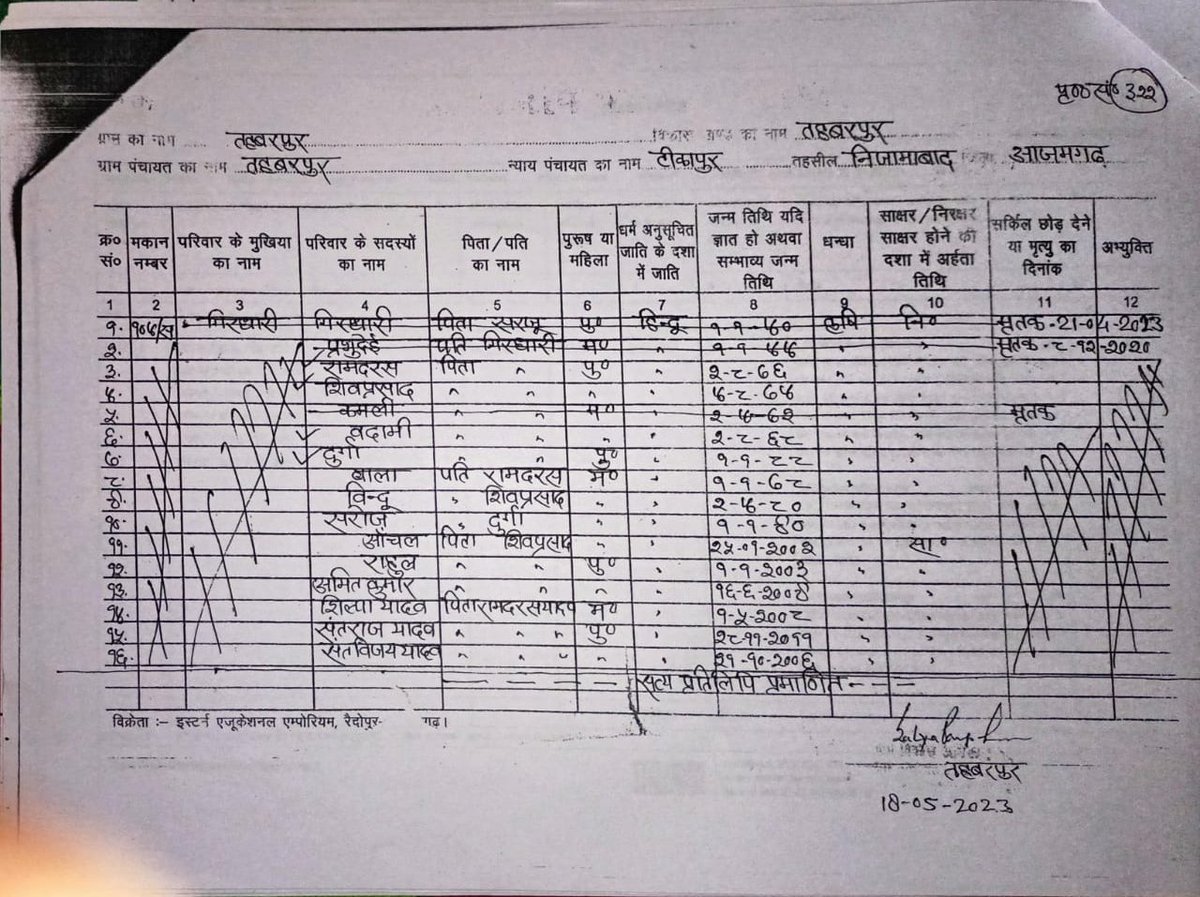 पृ०सं० ३२२
ग्राम का नाम तहबरपुर विकास खण्ड का नाम तहबरपुर
ग्राम पंचायत का नाम तहबरपुर न्याय पंचायत का नाम टीकापुर तहसील निजामाबाद जिला आजमगढ़
क्र० सं० मकान नम्बर परिवार के मुखिया का नाम परिवार के सदस्यों का नाम पिता/पति का नाम पुरूष या महिला धर्म अनुसूचित जाति के दशा में जाति जन्म तिथि यदि ज्ञात हो अथवा सम्भाव्य जन्म तिथि धन्धा साक्षर/निरक्षर साक्षर होने की दशा में अर्हता तिथि सर्किल छोड़ देने या मृत्यु का दिनांक अभ्युक्ति
1 2 3 4 5 6 7 8 9 10 11 12
१. गिरधारी गिरधारी पिता सरजू पु० हिन्दू १-१-५० कृषि नि० मृतक-21-04-2023
२. प्रभुदेई पति गिरधारी म० " १-१-५५ " " मृतक-८-१२-2020
३. रामदरस पिता " पु० " २-८-७६ " "
४. शिवप्रसाद " " " " ५-८-७५ " "
५. कमली " " म० " २-५-७२ " " मृतक
६. वदामी " " " " २-८-६८ " "
७. दुर्गा " " पु० " १-१-८८ " "
८. बाला पति रामदरस म० " १-१-७८ " "
९. विन्दू " शिवप्रसाद " " २-५-८० " "
१०. सरोज " दुर्गा " " १-१-९० " "
११. आंचल पिता शिवप्रसाद " " २५-०१-२००२ " सा०
१२. राहुल " " पु० " १-१-२००३ " "
१३. अमित कुमार " " " " १६-६-२००४ " "
१४. शिल्पा यादव पिता रामदरस यादव म० " १-५-२००८ " "
१५. संतराज यादव " " " पु० " २८-११-२०११ " "
१६. संतविजय यादव " " " " " २१-१०-२००६ " "
सत्य प्रतिलिपि प्रमाणित
विक्रेता :– इस्टर्न एजूकेशनल एम्पोरियम, रैदोपुर- गढ़।
तहबरपुर
18-05-2023